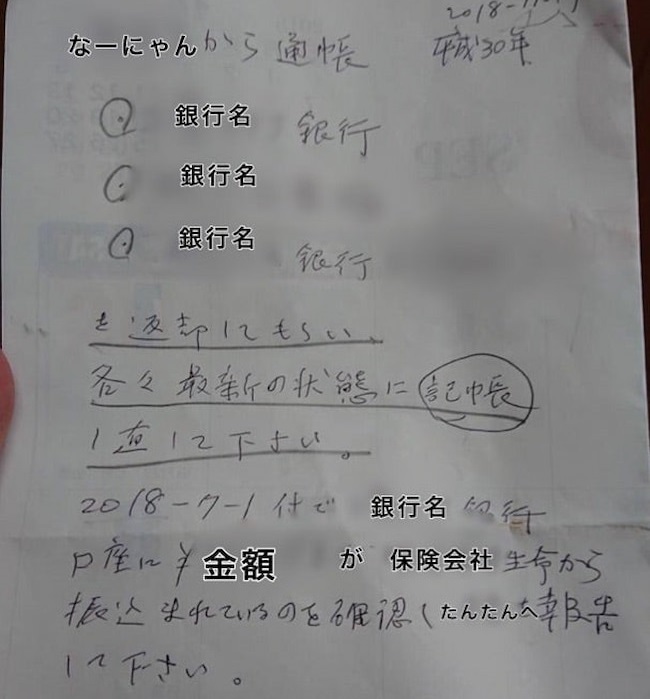 2018-7
平成30年
なーにゃんから通帳
銀行名 銀行
銀行名
銀行名 銀行
を返却してもらい、
各々最新の状態に記帳
し直して下さい。
2018-7-1付で 銀行名 銀行
口座に¥ 金額 が 保険会社 生命から
振込まれているのを確認したんたんへ報告
して下さい。
SEP